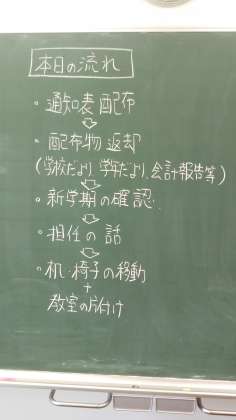 本日の流れ
・通知表配布
⇩
・配布物返却
(学校だより、学年だより、会計報告等)
⇩
・新学期の確認.
⇩
・担任の話
⇩
・机・椅子の移動
+
教室の片付け